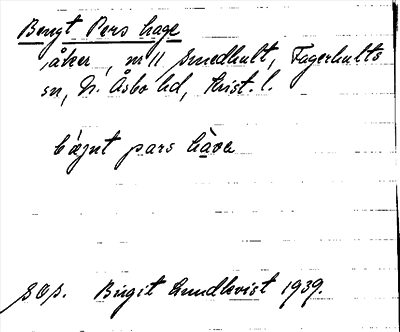 Bengt Pers hage
åker, nr 11 Smedhult, Fagerhults
sn, N. Åsbo hd, Krist. l.
bæŋt pars hàva
SOS. Birgit Lundkvist 1939.